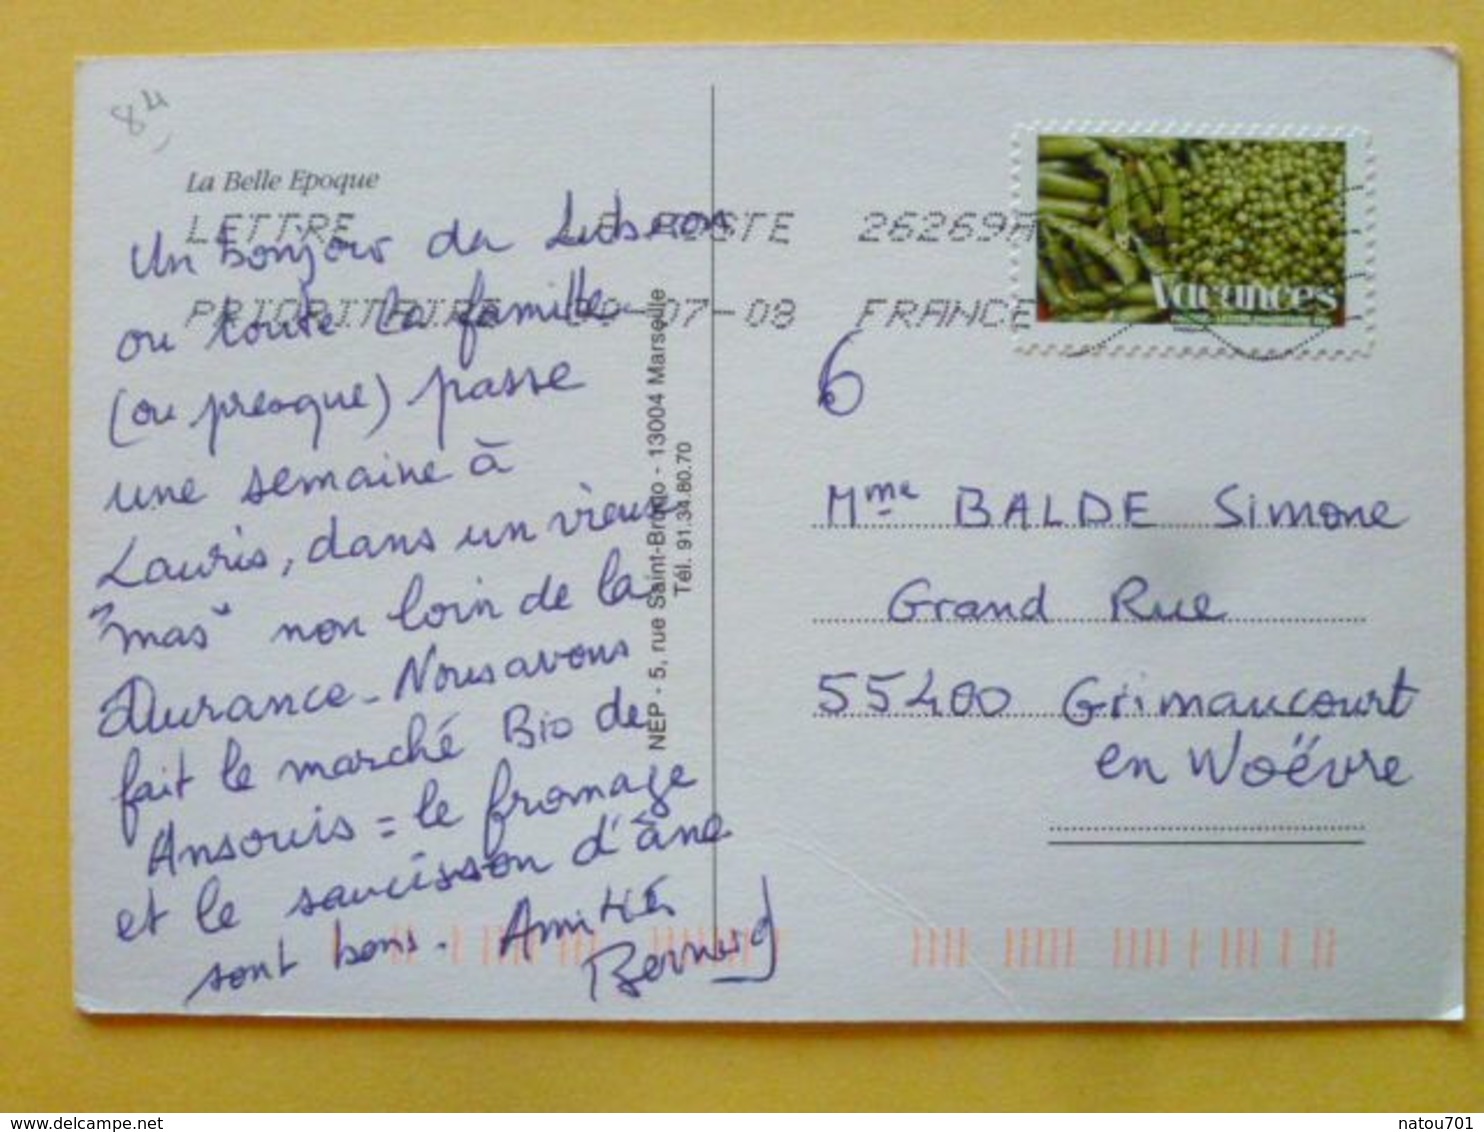 84
La Belle Epoque
LETTRE LA POSTE 26269A
PRIORITAIRE 07-08 FRANCE
Vacances
Un bonjour du Luberon
ou toute la famille
(ou presque) passe
une semaine à
Lauris, dans un vieux
"mas" non loin de la
Durance - Nous avons
fait le marché Bio de
Ansouis = le fromage
et le saucisson d'âne
sont bons. Amitiés
Bernard
NEP - 5, rue Saint-Bruno - 13004 Marseille
Tél. 91.34.80.70
6
Mme BALDE Simone
Grand Rue
55400 Grimaucourt
en Woëvre
natou701